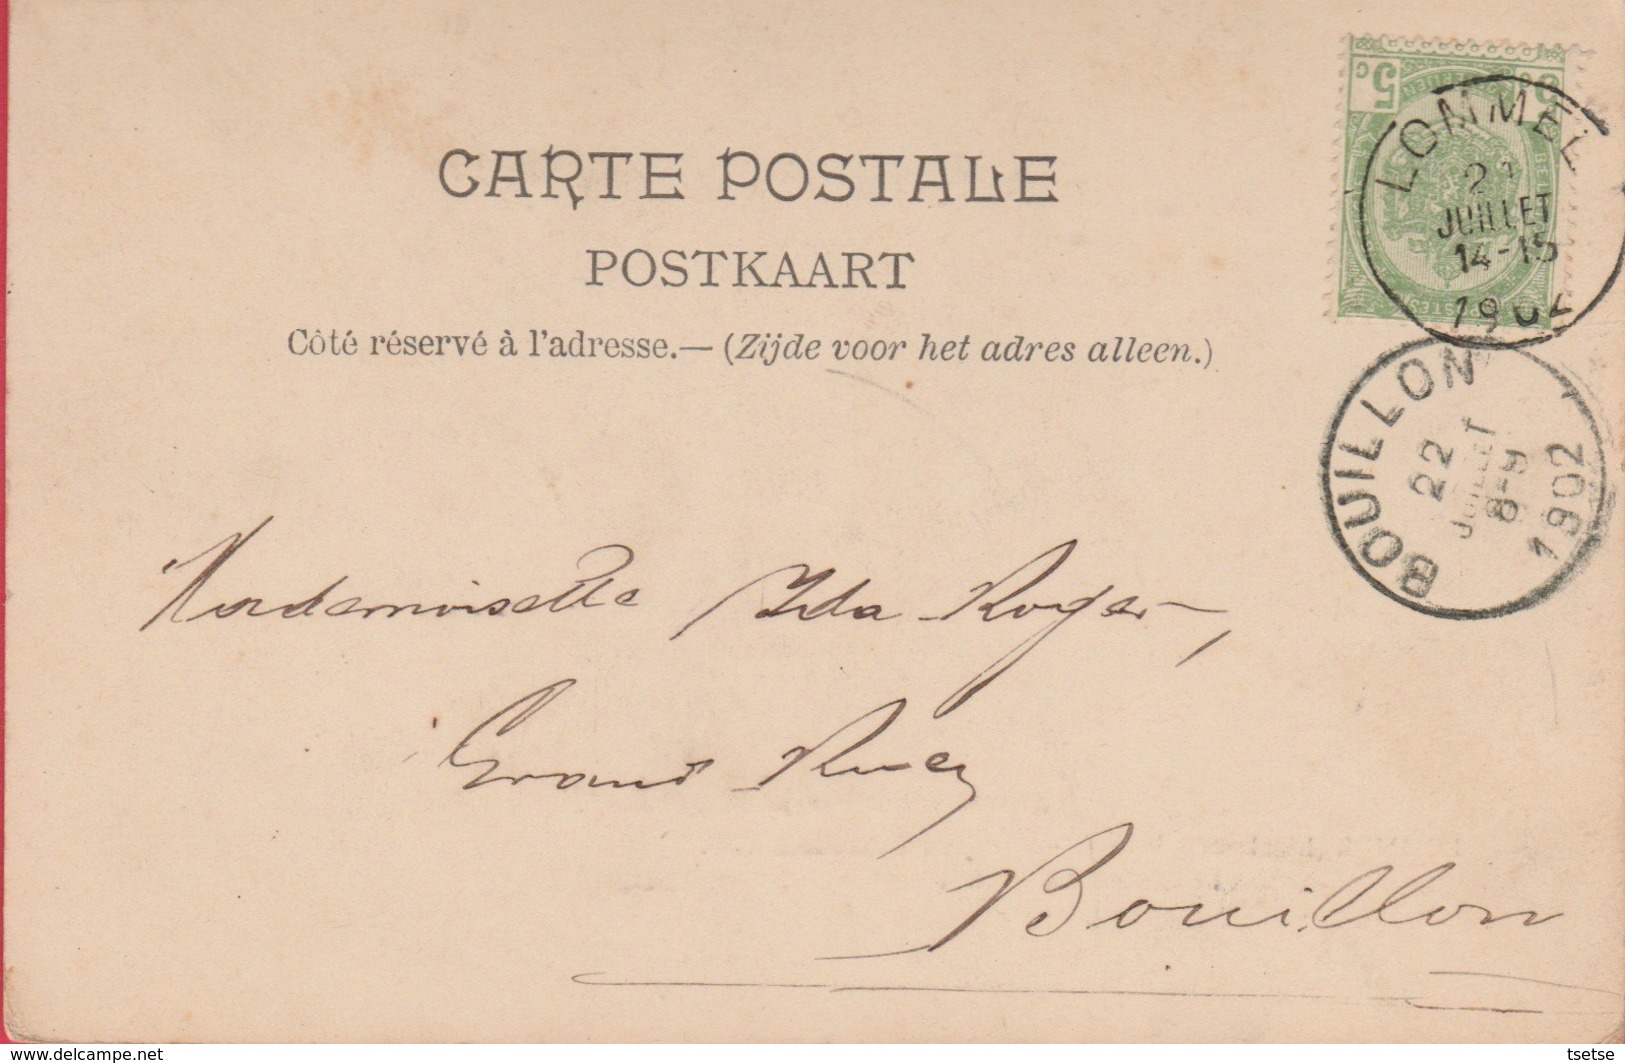 CARTE POSTALE
POSTKAART
Côté réservé à l'adresse.— (Zijde voor het adres alleen.)
5 c
5 c
LOMMEL
21
JUILLET
14-15
1902
BOUILLON
22
JUILLET
8-9
1902
Mademoiselle Ida Roger,
Grand Rue,
Bouillon
delcampe.net
tsetse